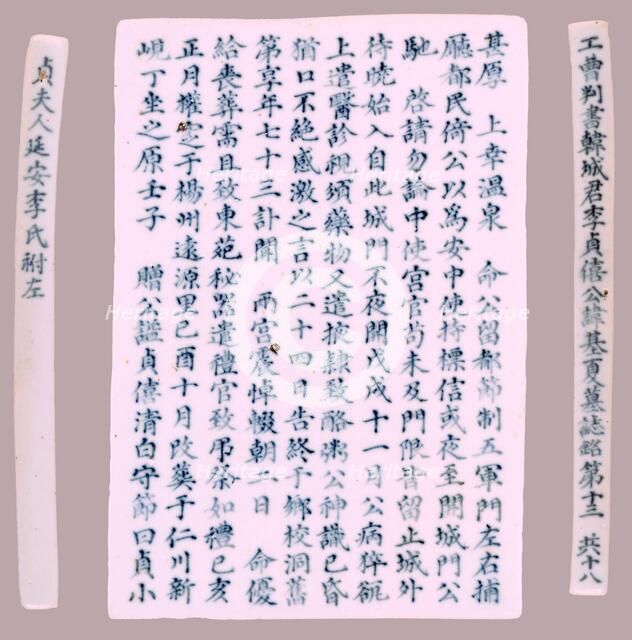 工曹判書韓城君李貞僖公諱基夏墓誌銘第十三 共十八
甚厚 上幸溫泉 命公留都節制五軍門左右捕
廳都民倚公以爲安中使持標信或夜至開城門公
馳 啓請勿論中使宮官苟未及門限皆留止城外
待曉始入自此城門不夜開戊戌十一 公病猝䫏
上遣醫診視須藥物又遣掖隷致酪粥公神識已昏
猶口不絶感激之言以二十四日告終于鄉校洞舊
第享年七十三訃聞 兩宮震悼輟朝 日 命優
給喪葬需且致東苑秘器遣禮官致吊祭如禮已亥
正月權窆于楊州遠源里己酉十月改葬于仁川新
峴丁坐之原壬子 贈公諡貞僖清白守節曰貞小
貞夫人延安李氏祔左
Heritage
Heritage
Heritage
Heritage
Heritage
Heritage